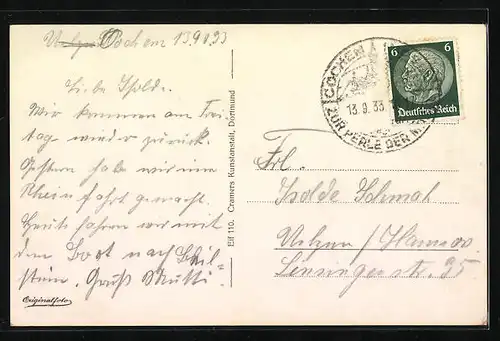 Cochem 13.9.33
Liebe Isolde.
Wir kommen am Frei-
tag wieder zurück.
Gestern haben wir eine
Rheinfahrt gemacht.
Heute fahren wir mit
dem Boot nach Beil-
stein. Gruß Mutti
Originalfoto
Eif 110. Cramers Kunstanstalt, Dortmund
COCHEM
13.9.33
ZUR PERLE DER
6 6
Deutsches Reich
Frl.
Isolde Schmah
Uelzen/Hannov.
35